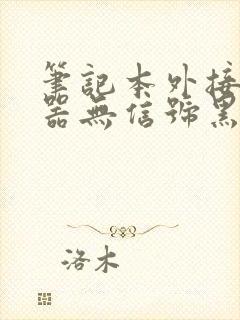 筆記本外接
器無信號黑
洛木